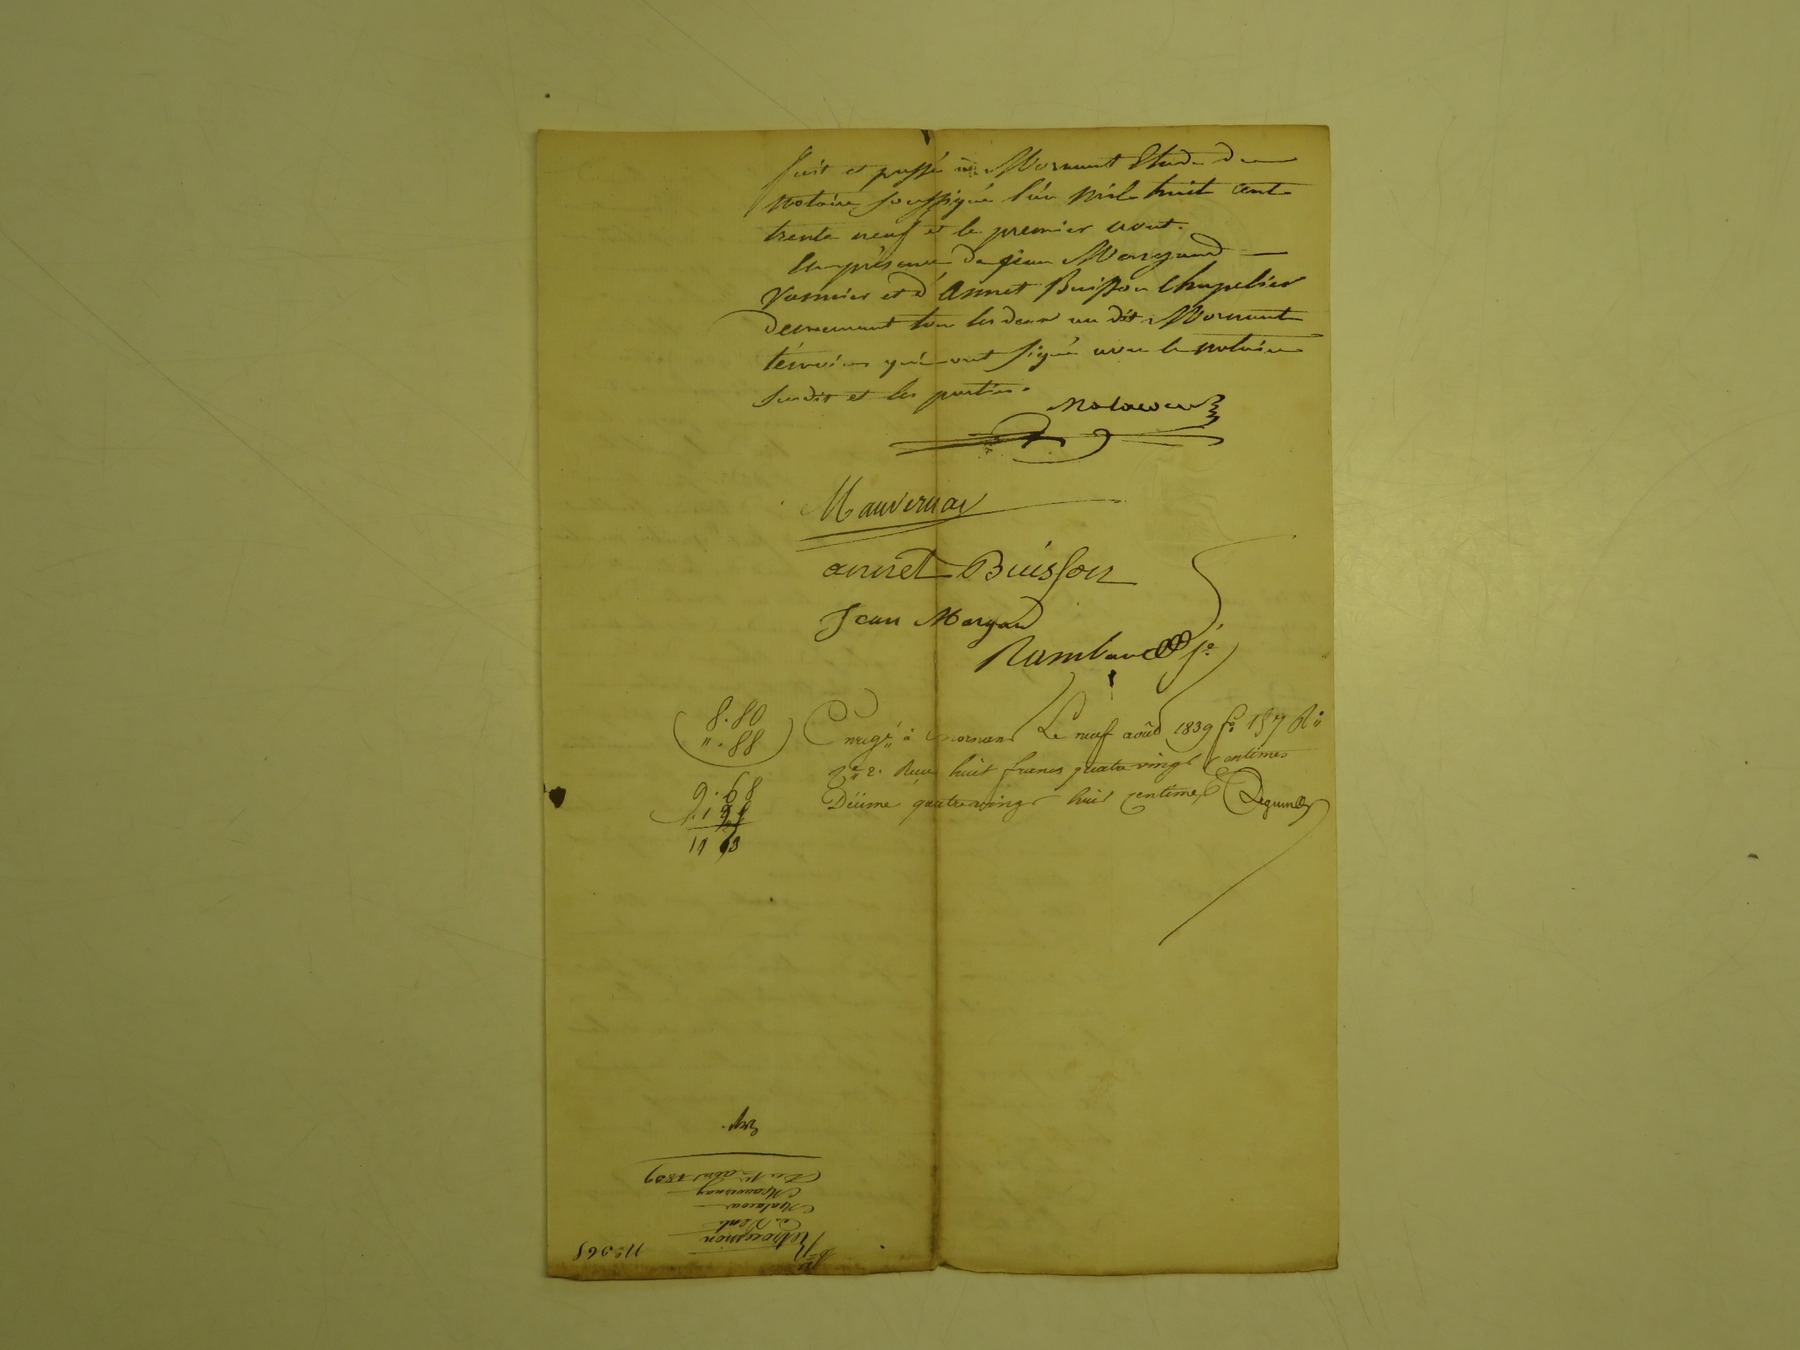 fait et passé à Mornant Etude du
notaire soussigné l'an mil huit cent
trente neuf et le premier aout.
En présence de Jean Morgand
vannier et d'Annet Buisson chapelier
demeurant tous les deux au dit Mornant
témoins qui ont signé avec le notaire
susdit et les parties.
Malacour
Mauvernay
annet Buisson
Jean Morgand
Rambaud je
8.80
".88
9.68
11 63
Enregé à Mornant Le neuf août 1839 fo 157 Ro
ce 2. Reçu huit francs quatre vingt centimes
Décime quatre vingt huit centimes
Rétrocession
Malacour
Mauvernay
Du 1er aout 1839
Exp.